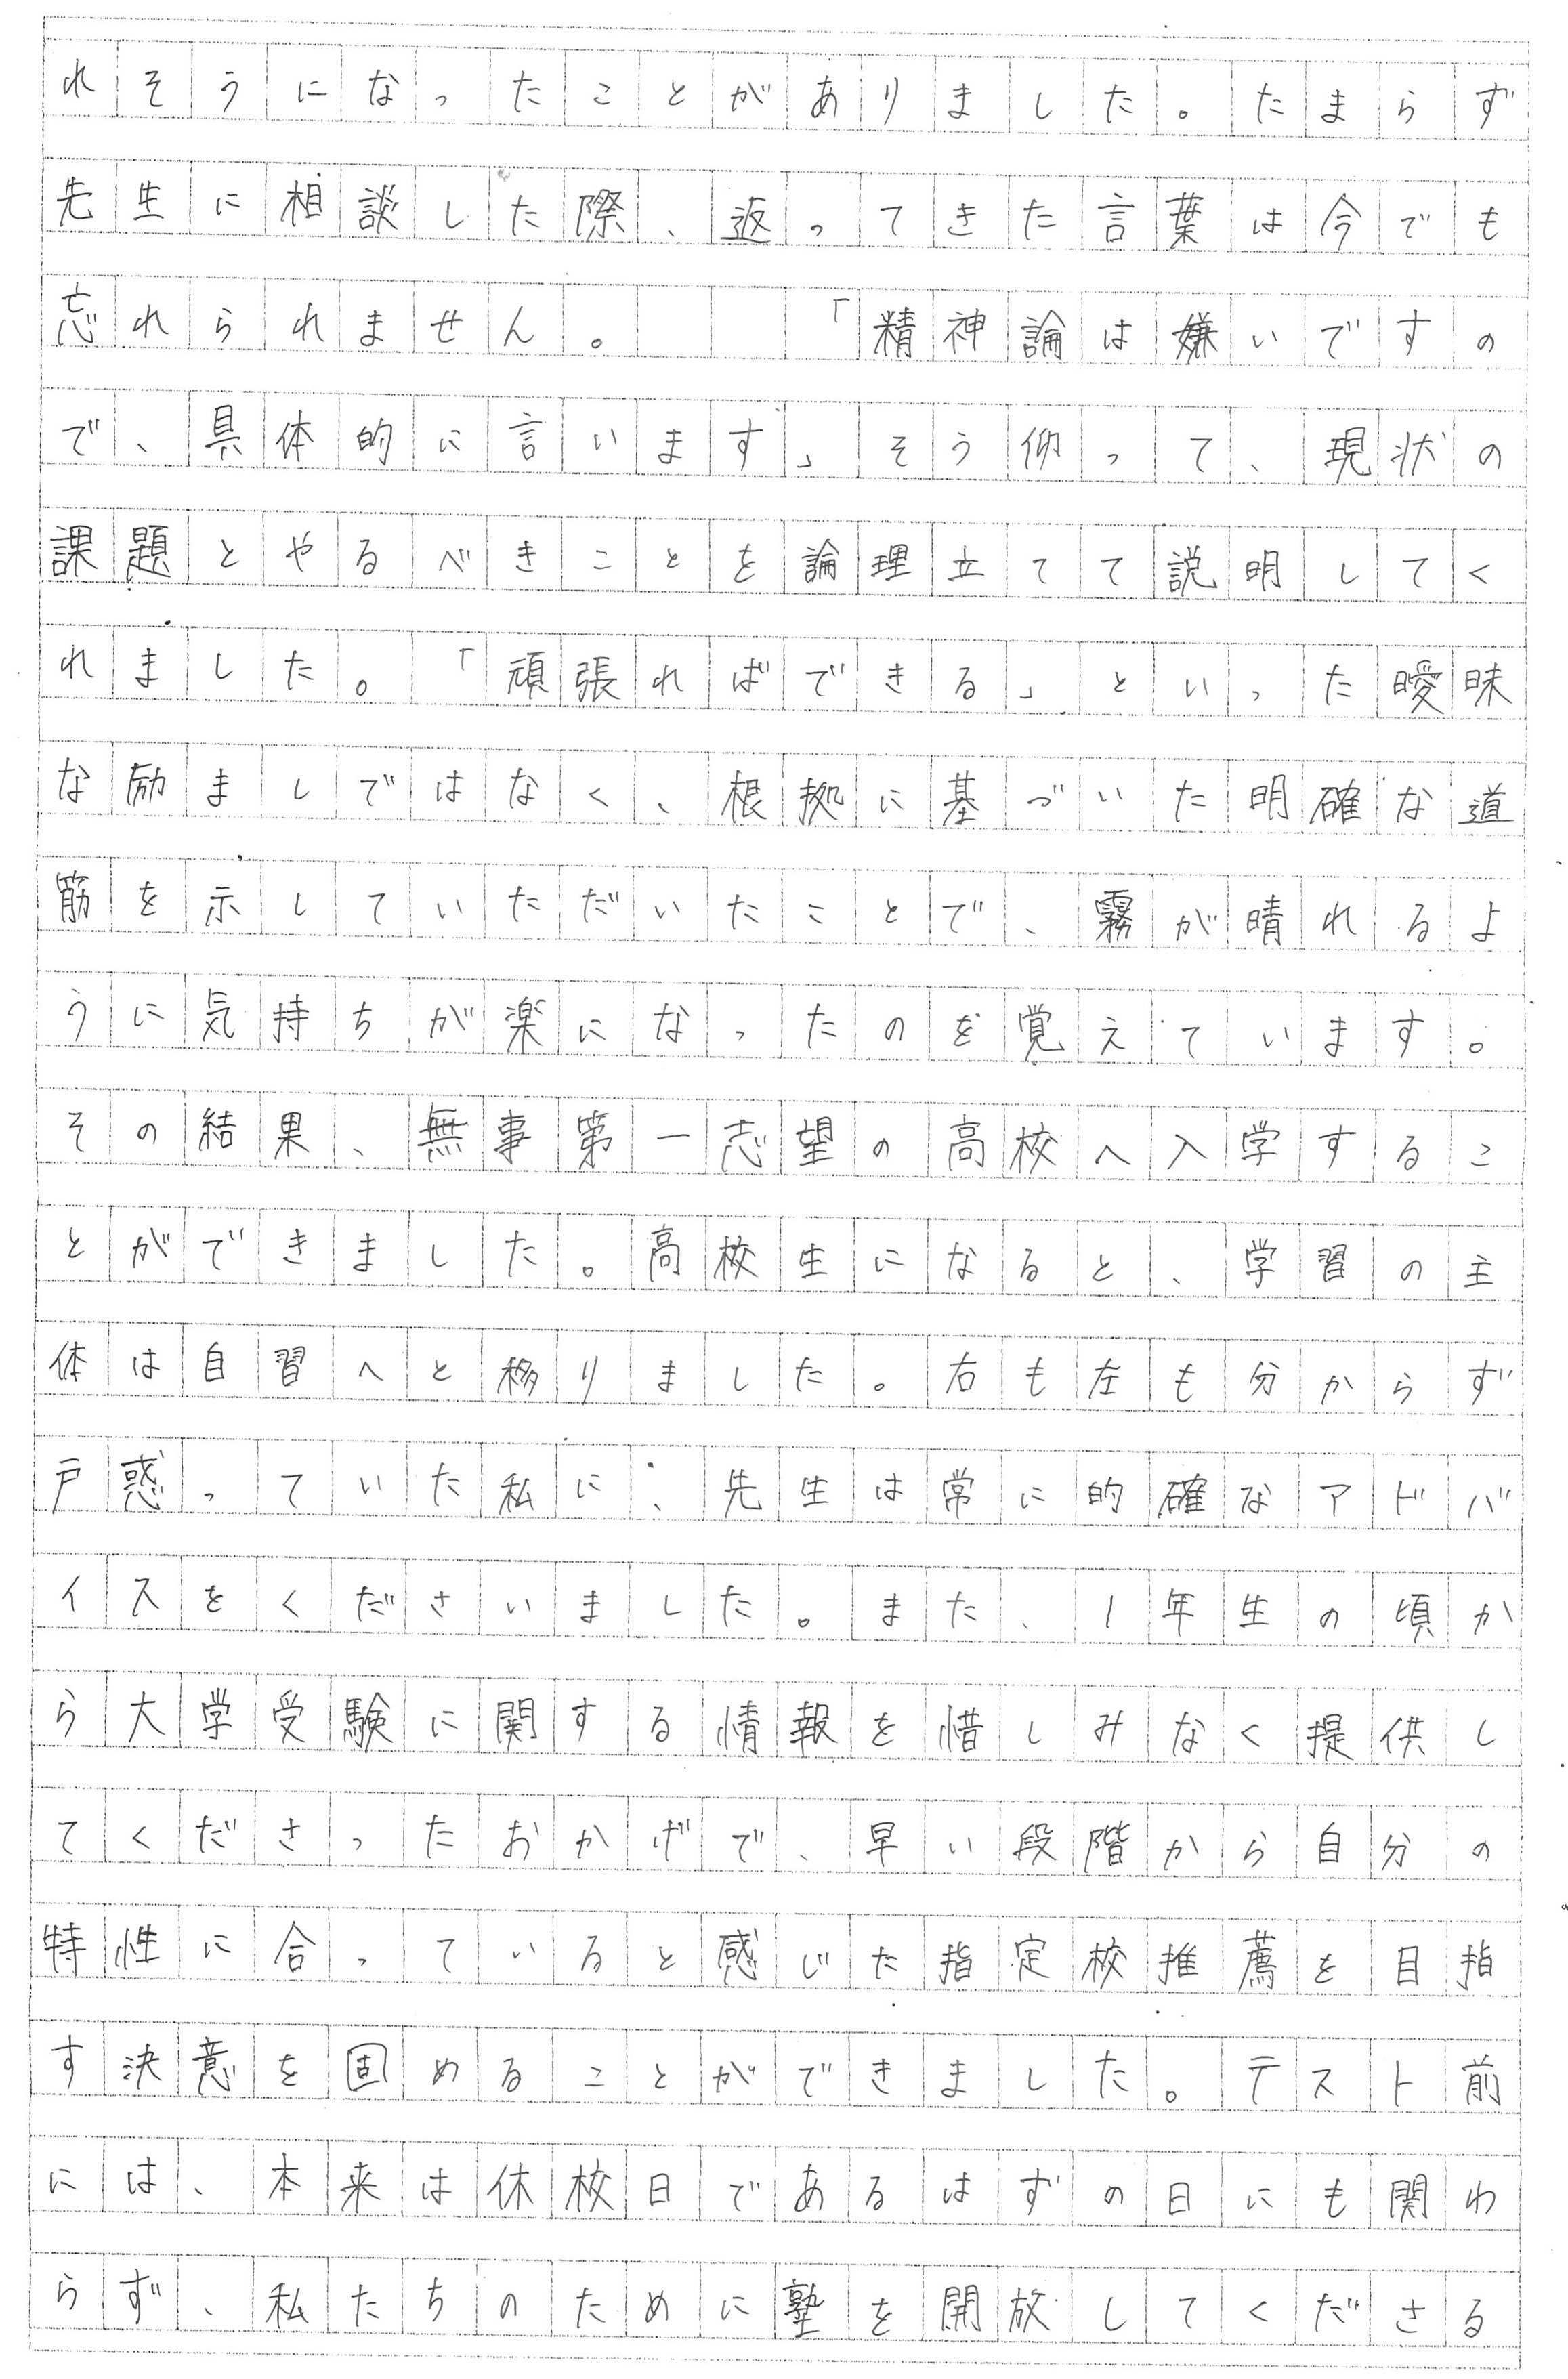 れそうになったことがありました。たまらず
先生に相談した際、返ってきた言葉は今でも
忘れられません。　　「精神論は嫌いですの
で、具体的に言います」そう仰って、現状の
課題とやるべきことを論理立てて説明してく
れました。「頑張ればできる」といった曖昧
な励ましではなく、根拠に基づいた明確な道
筋を示していただいたことで、霧が晴れるよ
うに気持ちが楽になったのを覚えています。
その結果、無事第一志望の高校へ入学するこ
とができました。高校生になると、学習の主
体は自習へと移りました。右も左も分からず
戸惑っていた私に、先生は常に的確なアドバ
イスをくださいました。また、1年生の頃か
ら大学受験に関する情報を惜しみなく提供し
てくださったおかげで、早い段階から自分の
特性に合っていると感じた指定校推薦を目指
す決意を固めることができました。テスト前
には、本来は休校日であるはずの日にも関わ
らず、私たちのために塾を開放してくださる